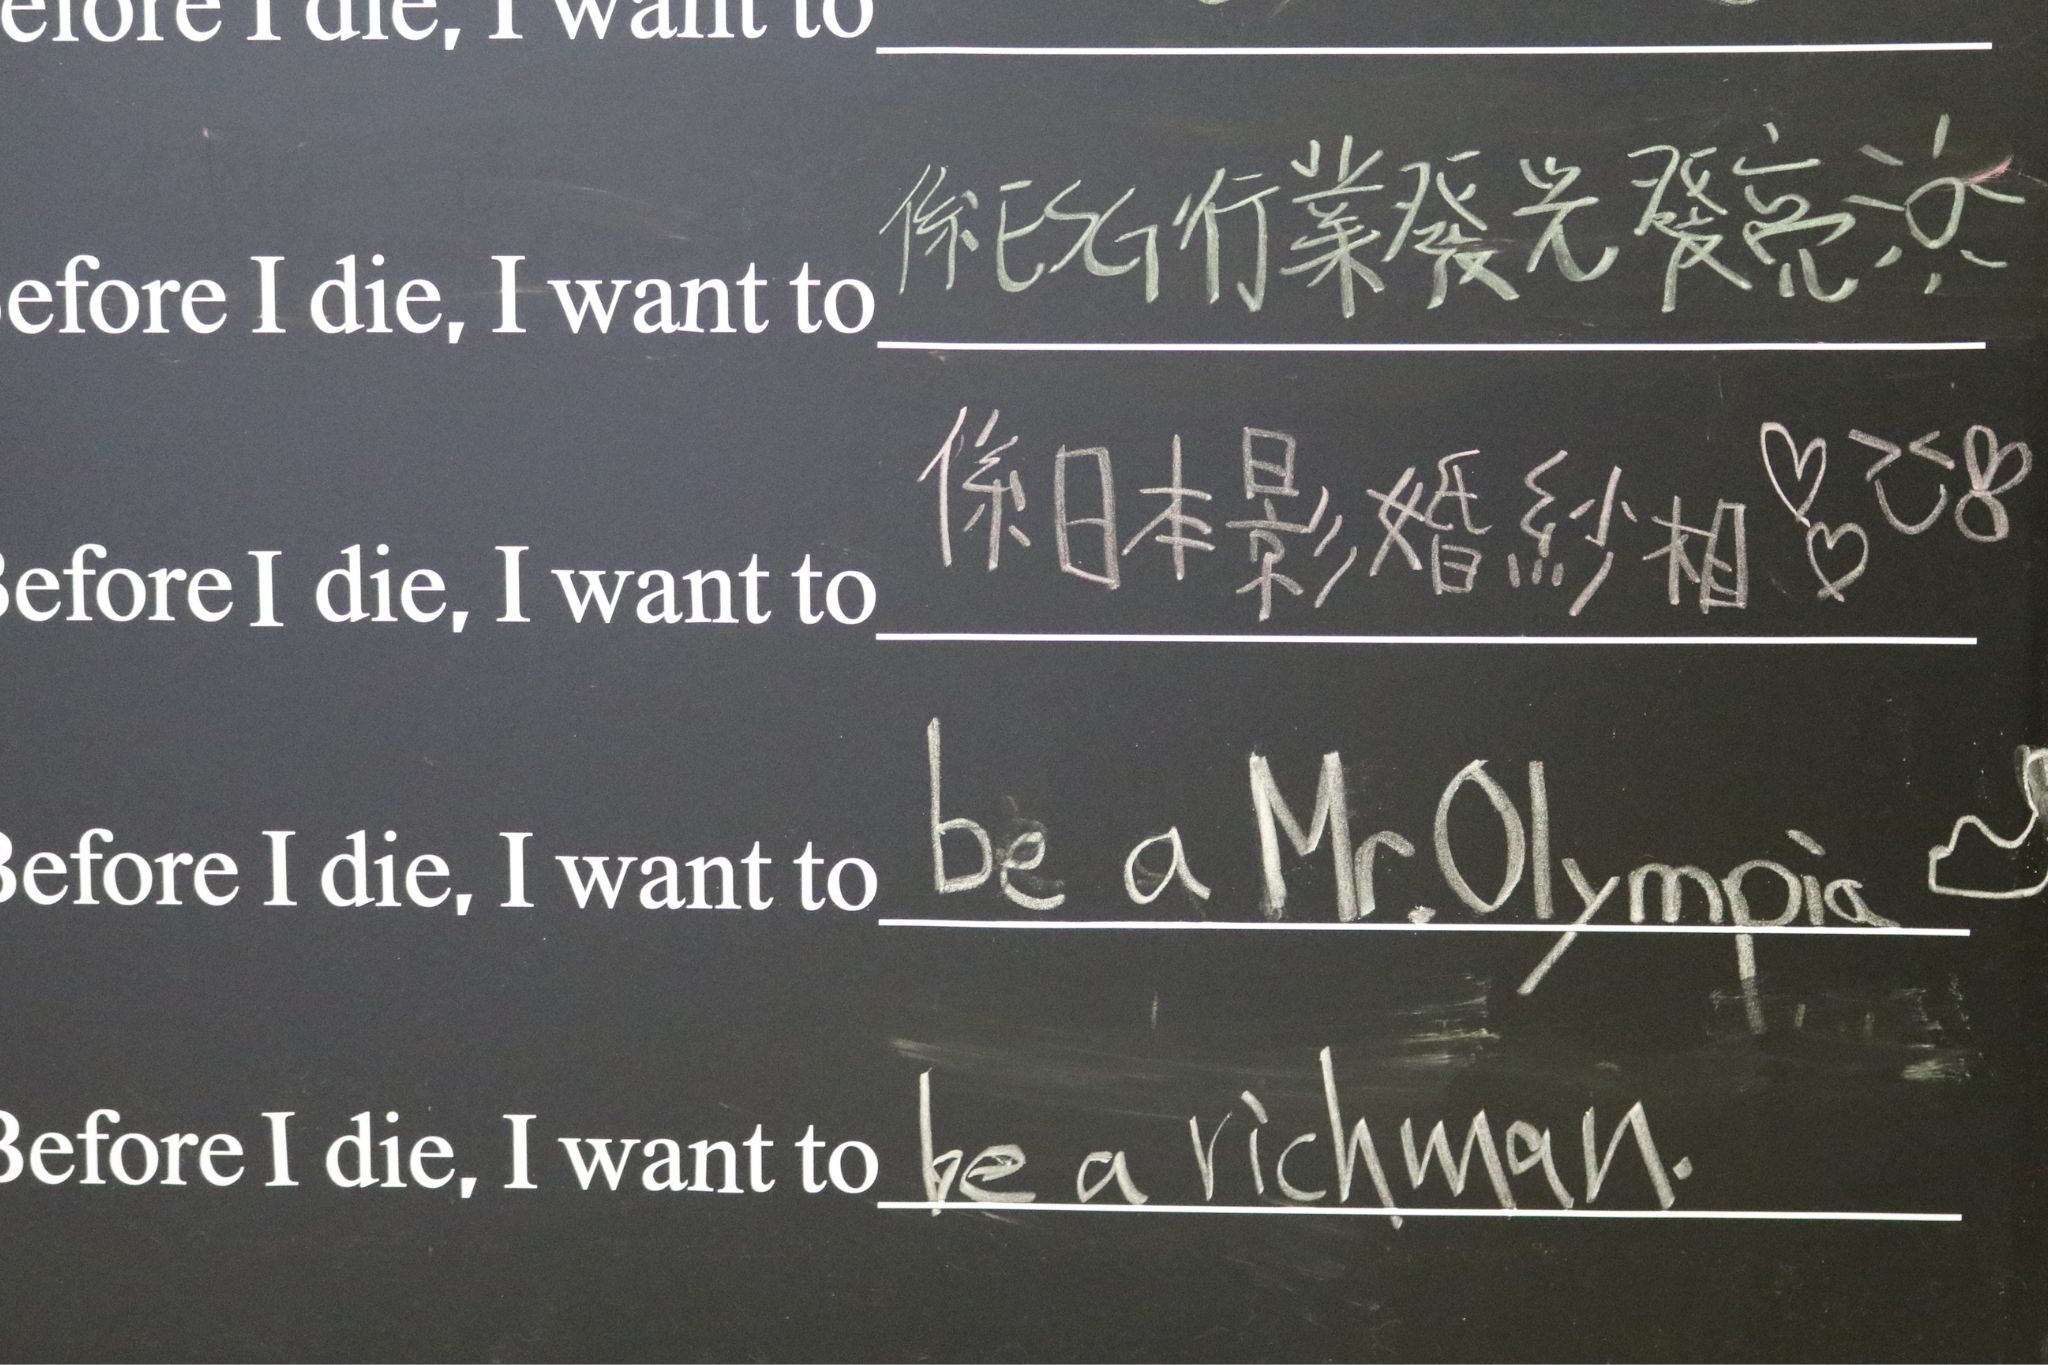 efore I die, I want to
efore I die, I want to 係ESG行業發光發亮
Before I die, I want to 係日本影婚紗相
Before I die, I want to be a Mr. Olympia
Before I die, I want to be a richman.